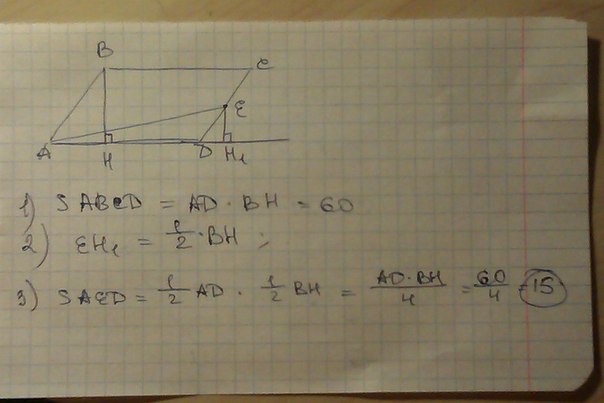 B
C
E
A
H
D
H₁
1) SABCD = AD · BH = 60
2) EH₁ = 1/2 · BH ;
3) SAED = 1/2 AD · 1/2 BH = AD·BH/4 = 60/4 = 15